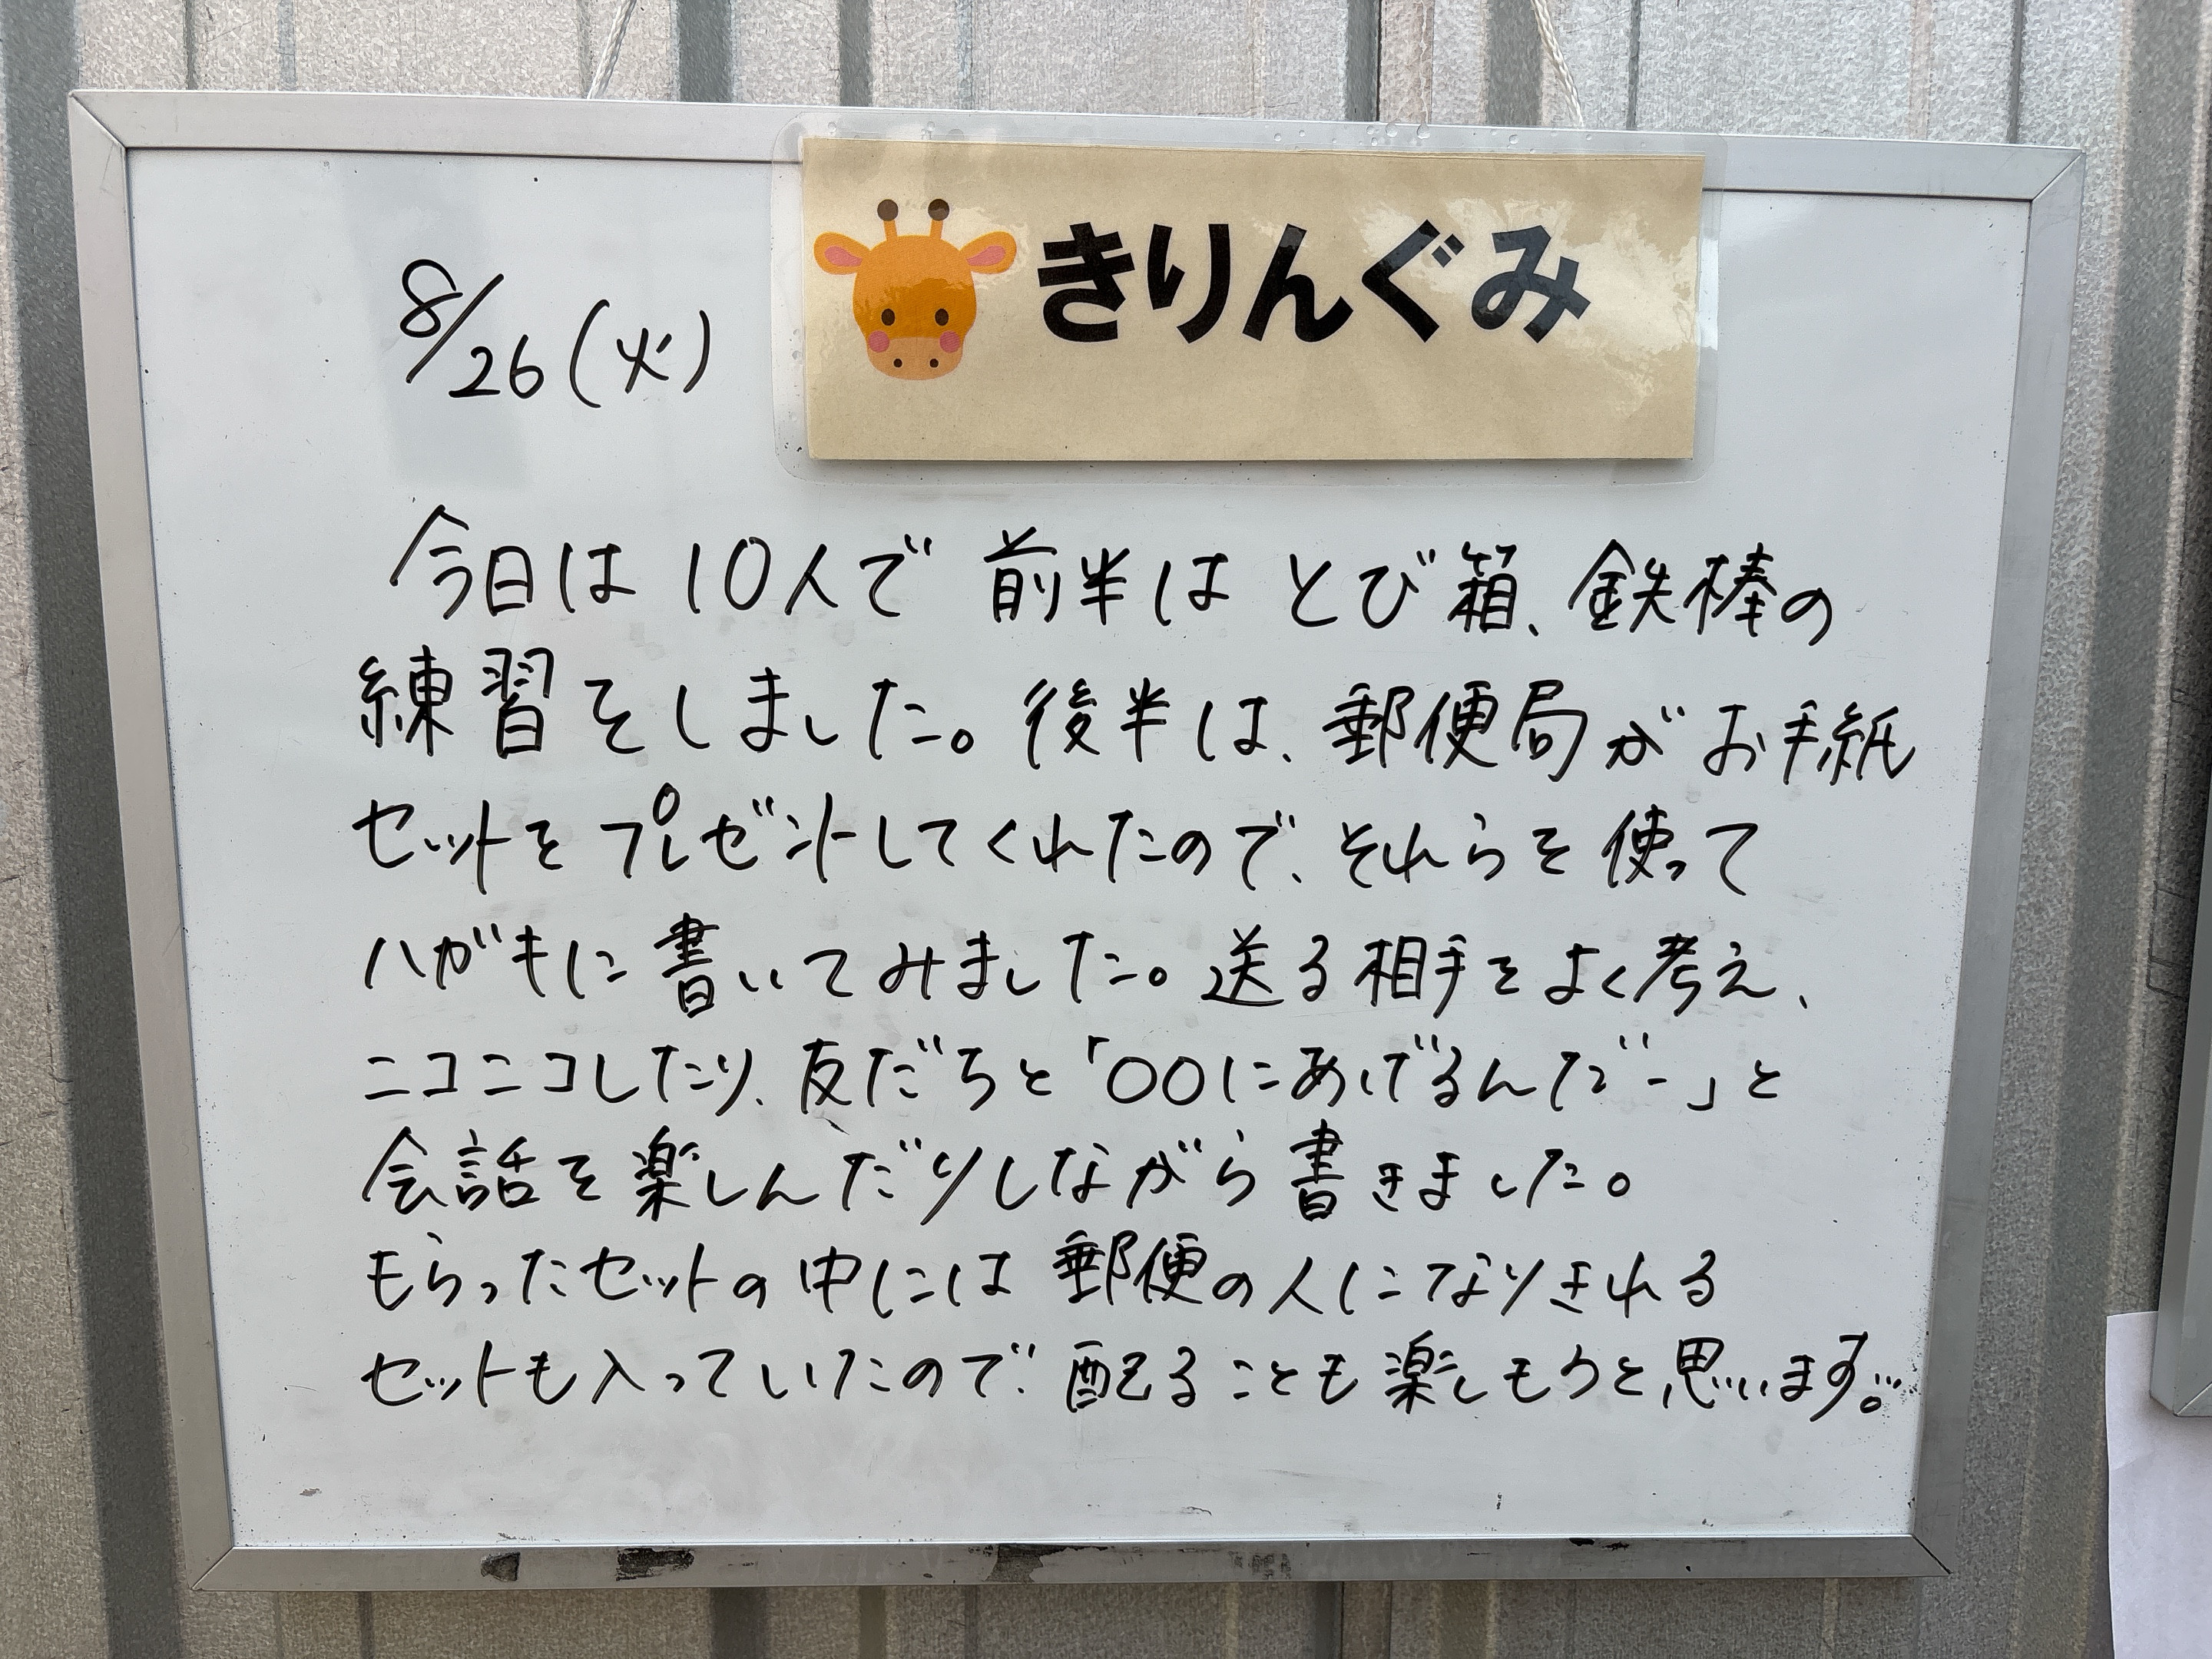 きりんぐみ
8/26(火)
今日は10人で前半はとび箱、鉄棒の
練習をしました。後半は、郵便局がお手紙
セットをプレゼントしてくれたので、それらを使って
ハガキに書いてみました。送る相手をよく考え、
ニコニコしたり、友だちと「〇〇にあげるんだ〜」と
会話を楽しんだりしながら書きました。
もらったセットの中には郵便の人になりきれる
セットも入っていたので、配ることも楽しもうと思います。